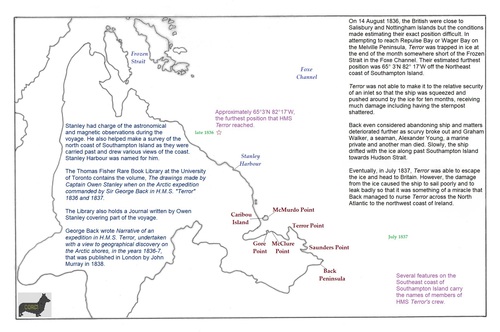 On 14 August 1836, the British were close to
Salisbury and Nottingham Islands but the conditions
made estimating their exact position difficult. In
attempting to reach Repulse Bay or Wager Bay on
the Melville Peninsula, Terror was trapped in ice at
the end of the month somewhere short of the Frozen
Strait in the Foxe Channel. Their estimated furthest
position was 65° 3'N 82° 17'W off the Northeast
coast of Southampton Island.
Terror was not able to make it to the relative security
of an inlet so that the ship was squeezed and
pushed around by the ice for ten months, receiving
much damage including having the sternpost
shattered.
Back even considered abandoning ship and matters
deteriorated further as scurvy broke out and Graham
Walker, a seaman, Alexander Young, a marine
private and another man died. Slowly, the ship
drifted with the ice along past Southampton Island
towards Hudson Strait.
Eventually, in July 1837, Terror was able to escape
the ice and head to Britain. However, the damage
from the ice caused the ship to sail poorly and to
leak badly so that it was something of a miracle that
Back managed to nurse Terror across the North
Atlantic to the northwest coast of Ireland.
Frozen
Strait
Foxe
Channel
Approximately 65°3'N 82°17'W,
the furthest position that HMS
Terror reached.
late 1836
Stanley had charge of the astronomical
and magnetic observations during the
voyage. He also helped make a survey of the
north coast of Southampton Island as they were
carried past and drew various views of the coast.
Stanley Harbour was named for him.
The Thomas Fisher Rare Book Library at the University
of Toronto contains the volume, The drawings made by
Captain Owen Stanley when on the Arctic expedition
commanded by Sir George Back in H.M.S. "Terror"
1836 and 1837.
The Library also holds a Journal written by Owen
Stanley covering part of the voyage.
George Back wrote Narrative of an
expedition in H.M.S. Terror, undertaken
with a view to geographical discovery on
the Arctic shores, in the years 1836-7,
that was published in London by John
Murray in 1838.
Stanley
Harbour
Caribou
Island
McMurdo Point
Terror Point
Gore
Point
McClure
Point
Saunders Point
Back
Peninsula
July 1837
Several features on the
Southeast coast of
Southampton Island carry
the names of members of
HMS Terror's crew.